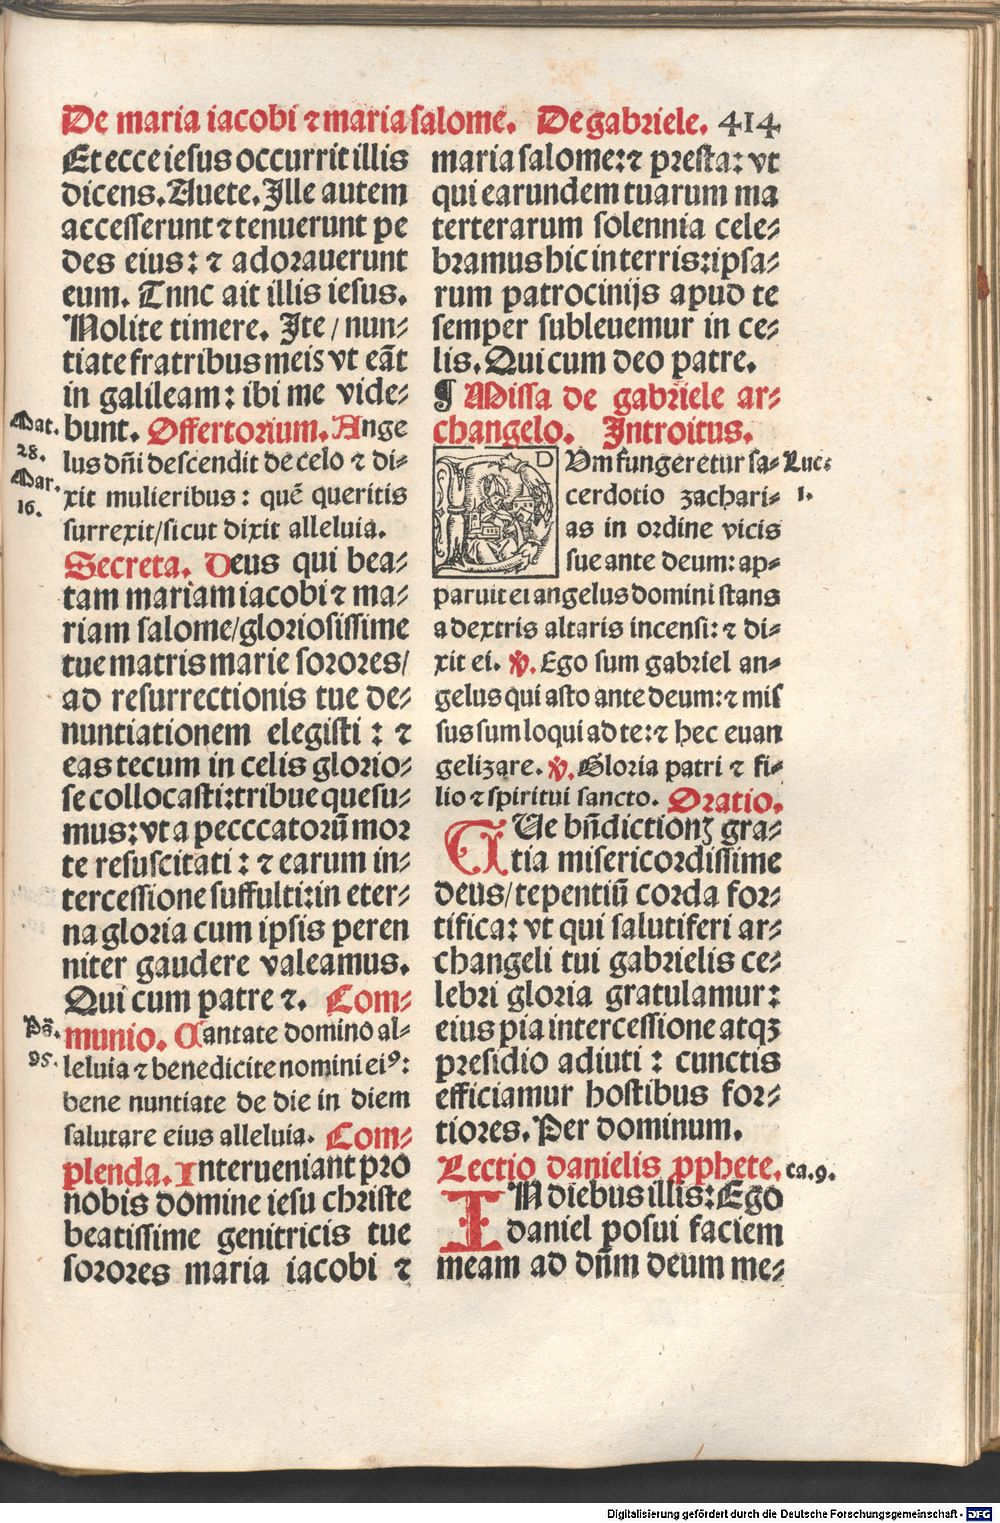 De maria iacobi ⁊ maria salome. De gabriele. 414
Et ecce iesus occurrit illis
dicens. Auete. Ille autem
accesserunt ⁊ tenuerunt pe
des eius: ⁊ adorauerunt
eum. Tnnc ait illis iesus.
Nolite timere. Ite / nun⸗
tiate fratribus meis vt eāt
in galileam: ibi me vide⸗
bunt. Offertorium. Ange
lus dñi descendit de celo ⁊ di⸗
xit mulieribus: quē queritis
surrexit/sicut dixit alleluia.
Secreta. Deus qui bea⸗
tam mariam iacobi ⁊ ma⸗
riam salome/gloriosissime
tue matris marie sorores/
ad resurrectionis tue de⸗
nuntiationem elegisti : ⁊
eas tecum in celis glorio⸗
se collocasti: tribue quesu⸗
mus: vt a pecccatorū mor
te resuscitati : ⁊ earum in⸗
tercessione suffulti: in eter⸗
na gloria cum ipsis peren
niter gaudere valeamus.
Qui cum patre ⁊. Com⸗
munio. Cantate domino al⸗
leluia ⁊ benedicite nomini eiꝰ:
bene nuntiate de die in diem
salutare eius alleluia. Com⸗
plenda. Interueniant pro
nobis domine iesu christe
beatissime genitricis tue
sorores maria iacobi ⁊
Mat.
28.
Mar.
16.
Ps̄.
95.
maria salome: ⁊ presta: vt
qui earundem tuarum ma
terterarum solennia cele⸗
bramus hic in terris: ipsa⸗
rum patrocinijs apud te
semper subleuemur in ce⸗
lis. Qui cum deo patre.
¶ Missa de gabriele ar⸗
changelo. Introitus.
DVm fungeretur sa⸗
cerdotio zachari⸗
as in ordine vicis
sue ante deum: ap⸗
paruit ei angelus domini stans
a dextris altaris incensi: ⁊ di⸗
xit ei. ℣. Ego sum gabriel an⸗
gelus qui asto ante deum: ⁊ mis
sus sum loqui ad te: ⁊ hec euan
gelizare. ℣. Gloria patri ⁊ fi⸗
lio ⁊ spiritui sancto. Oratio.
AVe bn̄dictionꝫ gra⸗
tia misericordissime
deus/tepentiū corda for⸗
tifica: vt qui salutiferi ar⸗
changeli tui gabrielis ce⸗
lebri gloria gratulamur:
eius pia intercessione atqꝫ
presidio adiuti : cunctis
efficiamur hostibus for⸗
tiores. Per dominum.
Lectio danielis ꝓphete. ca. 9.
IN diebus illis: Ego
daniel posui faciem
meam ad dn̄m deum me⸗
Luc:
1.
Digitalisierung gefördert durch die Deutsche Forschungsgemeinschaft - DFG